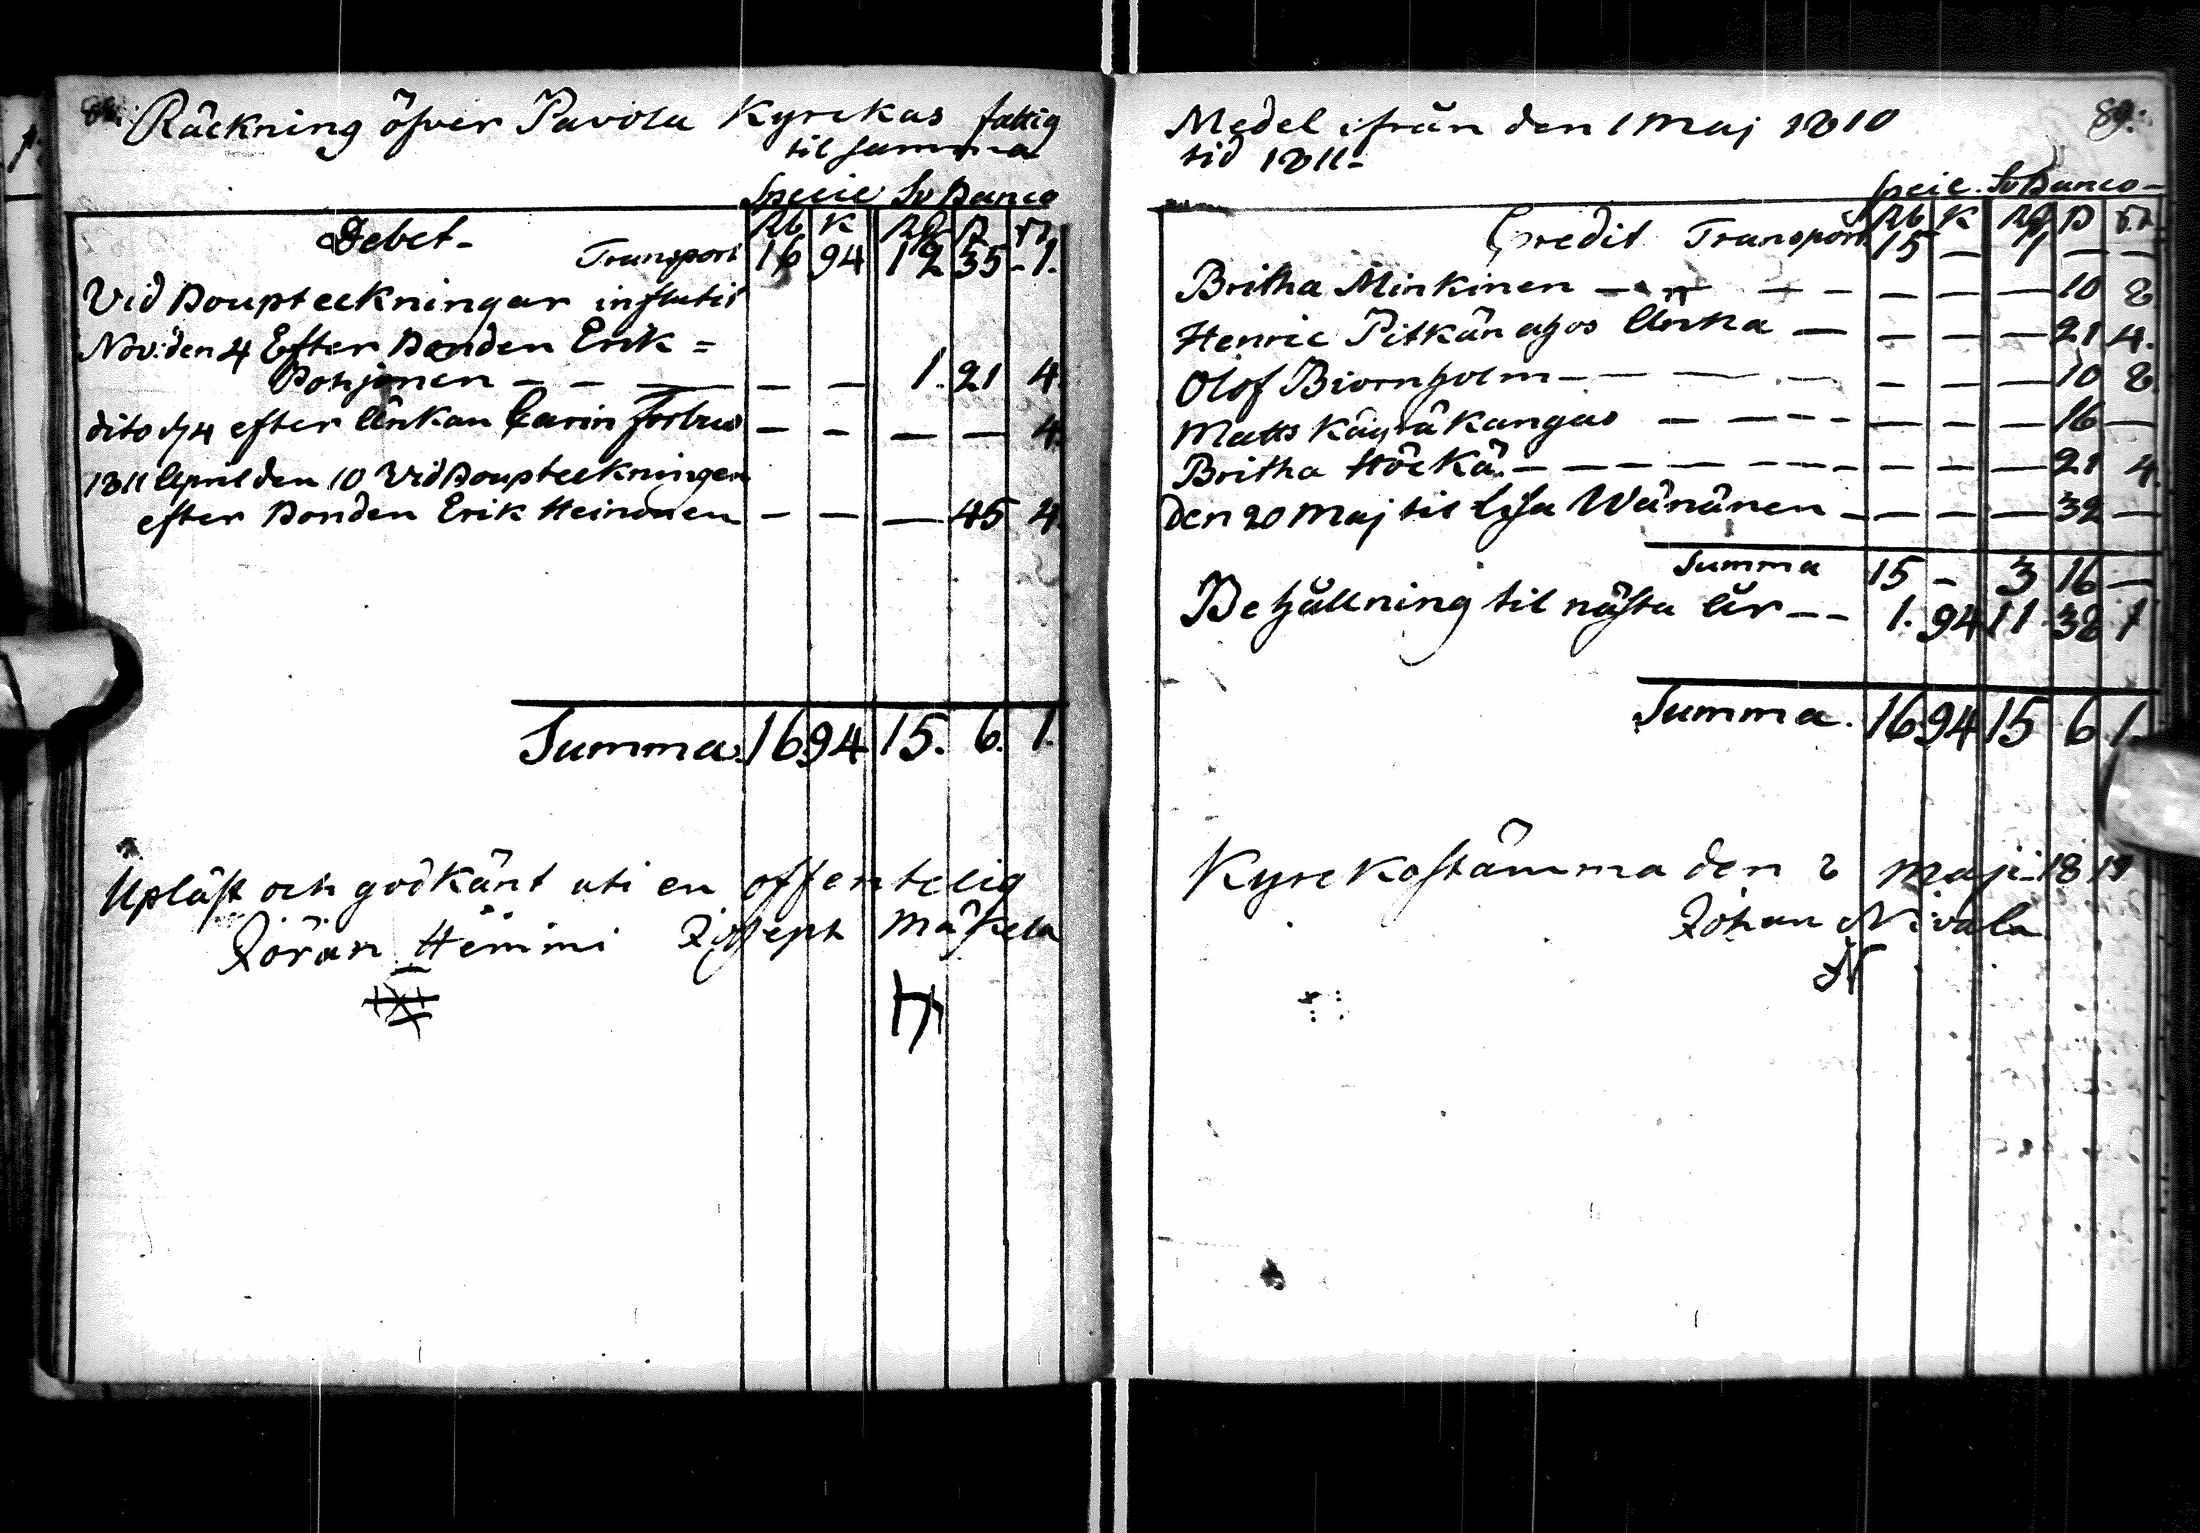 Räckning öfver Pavola Kyrckas fattig
til samma
Specie Sv Banco
Debet- Rb K Rd ß rst
Transport 16 94 12 35 - 1.
Vid Boupteckningar influtit
Nov: den 4 Efter Bonden Erik =
Pohjonen - - - - - 1. 21 4.
dito d 4 efter Enkan Carin Forbus - - - - 4.
1811 April den 10 Vid Boupteckningen
efter Bonden Erik Heinonen - - - 45 4.
Summa. 16 94 15. 6. 1.
Upläst och godkänt uti en offentelig
Jöran Hemmi Joseph Mäkela
Medel ifrån den 1 Maj 1810 89.
tid 1811-
Specie. Sv Banco-
Credit Rb K Rd ß rst
Transport 15 - 1 - -
Britha Minkinen - - - - - - - 10 8
Henric Pitkänahos Enka - - - - 21 4.
Olof Biornholm - - - - - - - 10 8
Matts Käyräkangas - - - - - - - 16 -
Britha Höckä. - - - - - - - - 21 4.
Den 20 Maj til Lisa Wänänen - - - - 32 -
Summa 15 - 3 16 -
Behållning til nästa år - - 1. 94 11 38 1
Summa. 16 94 15 6 1.
Kyrckostämma den 2 Maji 1811
Johan Nivala
N